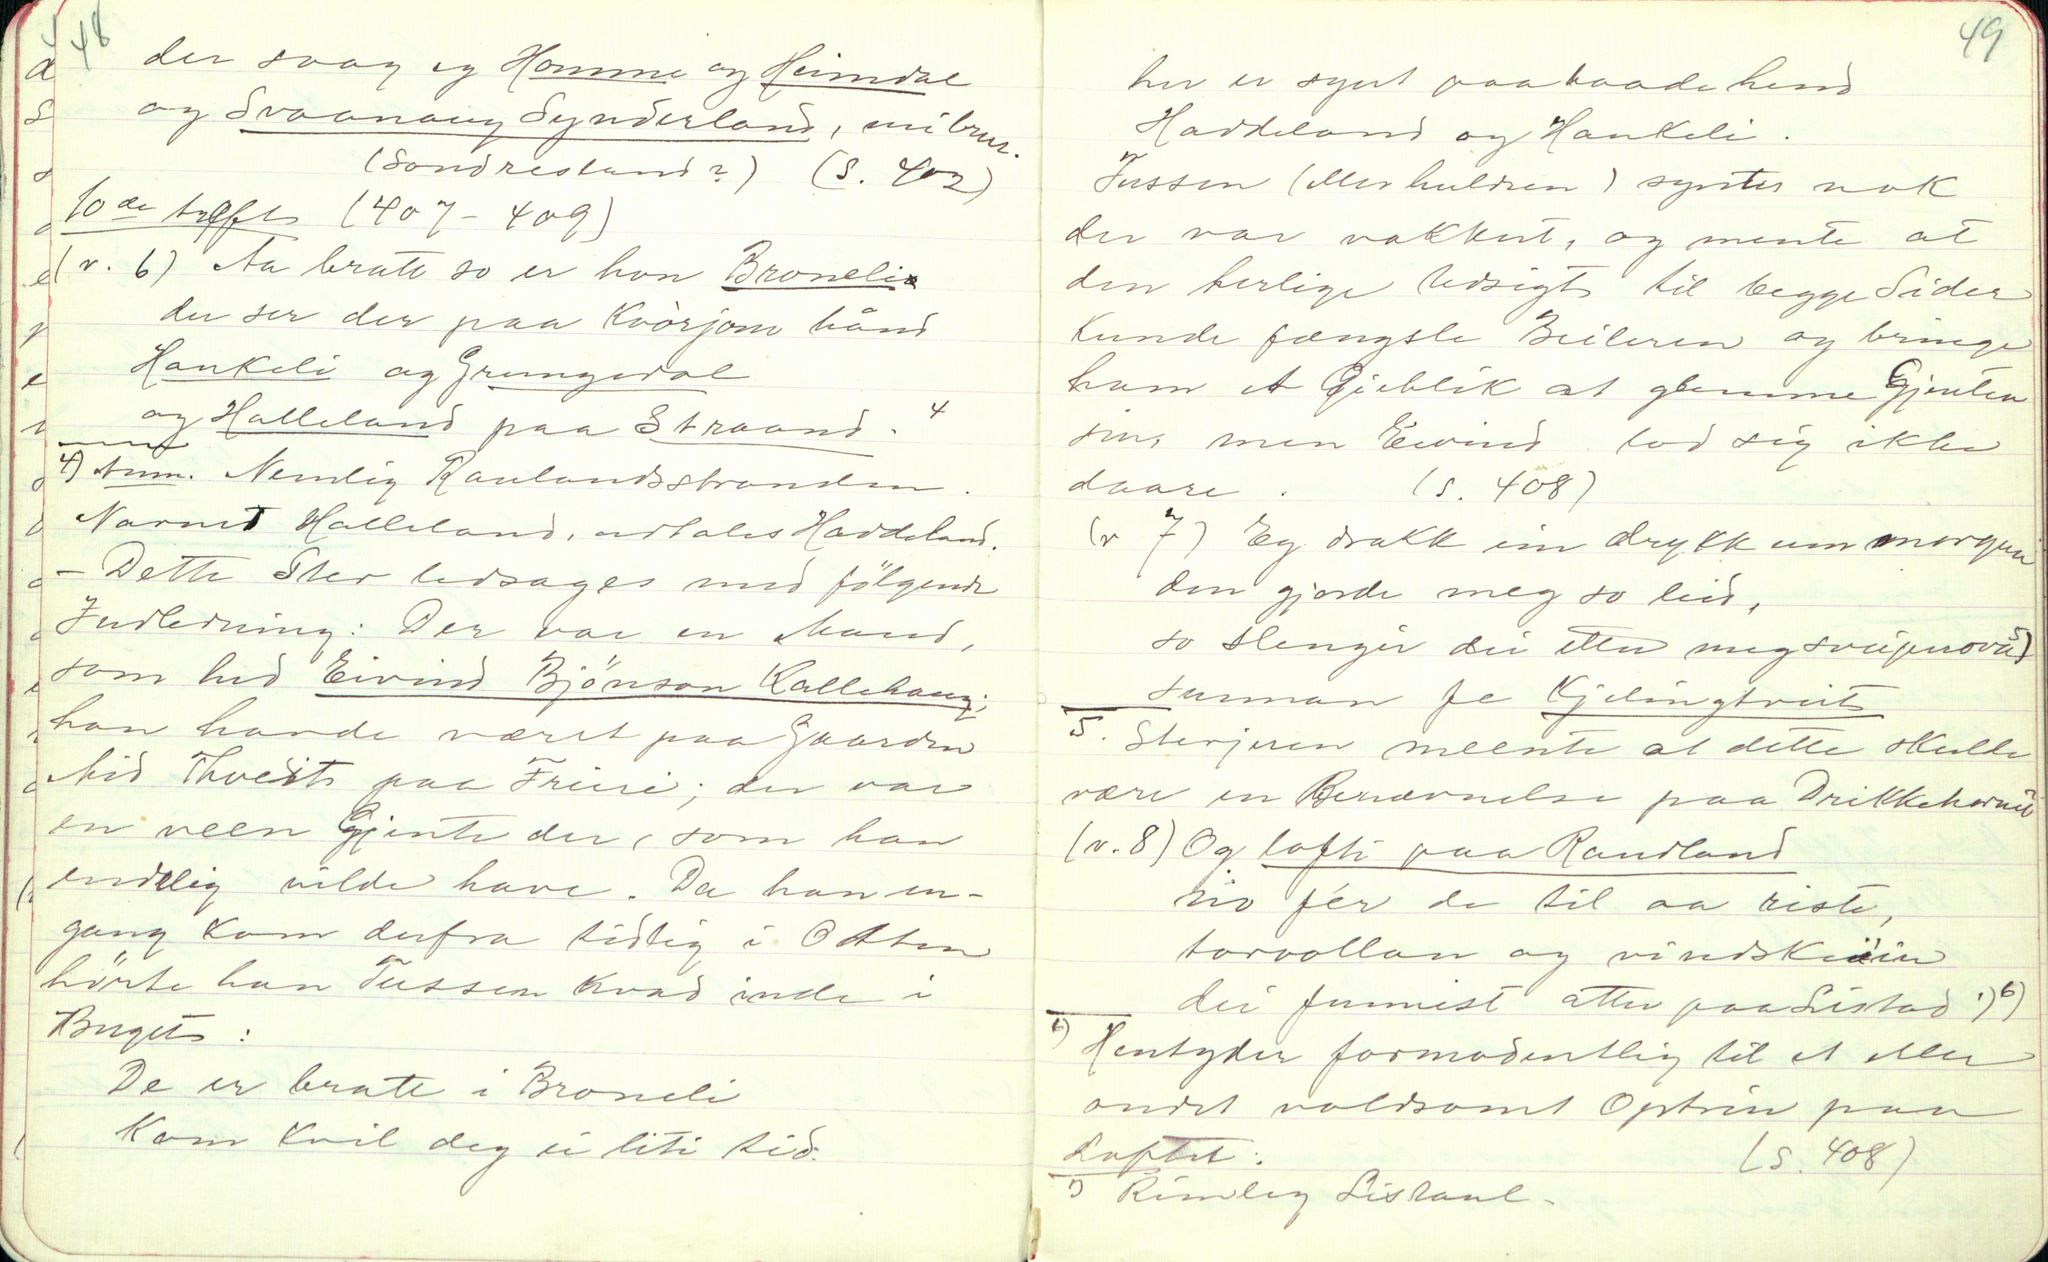 48
der svag eg Homme og Heimdal
og Svaanaug Synderland,
(Sondresland?) (S. 402)
10de hefte (407-409)
(v. 6) Aa bratt so er hon Broneli
du ser der paa Kvòrjom hånd
Haukeli og Grungedal
og Halleland paa Straand. 4
4) Anm. Nemlig Raulandsstranden.
Navnet Halleland, udtales Haddeland.
- Dette Stev ledsages med følgende
Indledning: Der var en Mand,
som hed Eivind Bjönson Kallehaug;
han havde været paa Gaarden
Mid Thveit paa Friire; der var
en veen Gjente der, som han
endelig vilde have. Da han en-
gang kom derfra tidlig i Otten
hörte han Tussen kvad inde i
Berget:
De er bratt i Broneli
Kom kvil deg ei liti tid.
49
her er synt paa baade hend
Haddeland og Haukeli.
Tussen (eller huldren) syntes nok
der var vakkert, og mente at
den herlige Udsigt til begge Sider
kunde fængsle Beileren og bringe
ham et Øieblik at glemme Gjenten
sin, men Eivind lod sig ikke
daare. (s. 408)
(v 7) Eg drakk ein drykk um morgen
den gjorde meg so leid,
so slengir dei etter meg 5)
summan fe Kjelingtveit
5. Stevjeren meente at dette skulle
være en Benævnelse paa Drikkehornet
(v. 8) Og lofti paa Randland
no fér de til aa riste,
torvollan og vindskeiin
dei funnest atter paa Listad 1) 6)
6) Hentyder formodentlig til et eller
andet voldsomt Optrin paa
Loftet. (s. 408)
1) Rimlig Listaul.